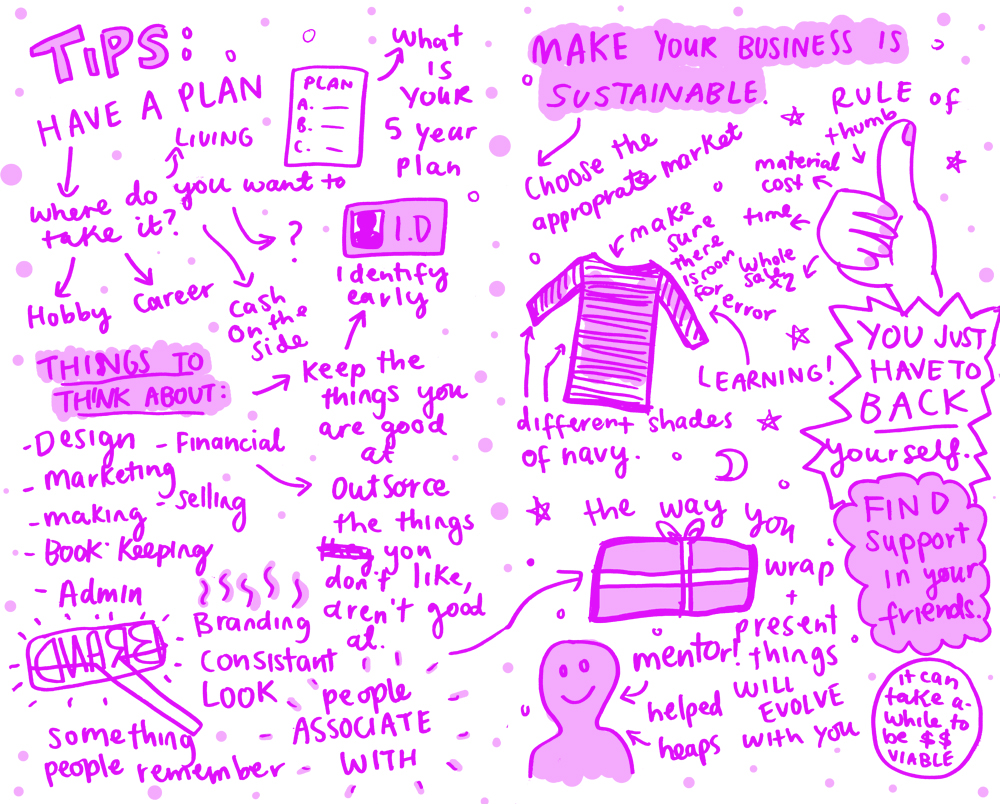 TIPS:
HAVE A PLAN
PLAN
A.
B.
C.
What
is
YOUR
5 year
plan
LIVING
where do you want to
take it?
?
Hobby
Career
Cash
on the
side
I.D
Identify
early
THINGS TO
THINK ABOUT:
- Design
- Financial
- Marketing
- selling
- making
- Book Keeping
- Admin
keep the
things you
are good
at
Outsorce
the things
they you
don't like,
aren't good
at.
BRAND
Branding
Consistant
LOOK
something
people remember
people
ASSOCIATE
WITH
MAKE YOUR BUSINESS IS
SUSTAINABLE.
Choose the
appropriate market
RULE OF
thumb
material
cost
time
whole
sale
x2
make
sure
there
is room
for
error
LEARNING!
different shades
of navy.
YOU JUST
HAVE TO
BACK
yourself.
FIND
support
in your
friends.
the way you
wrap
+
present
things
WILL
EVOLVE
with you
mentor!
helped
heaps
it can
take a
while to
be $$
VIABLE